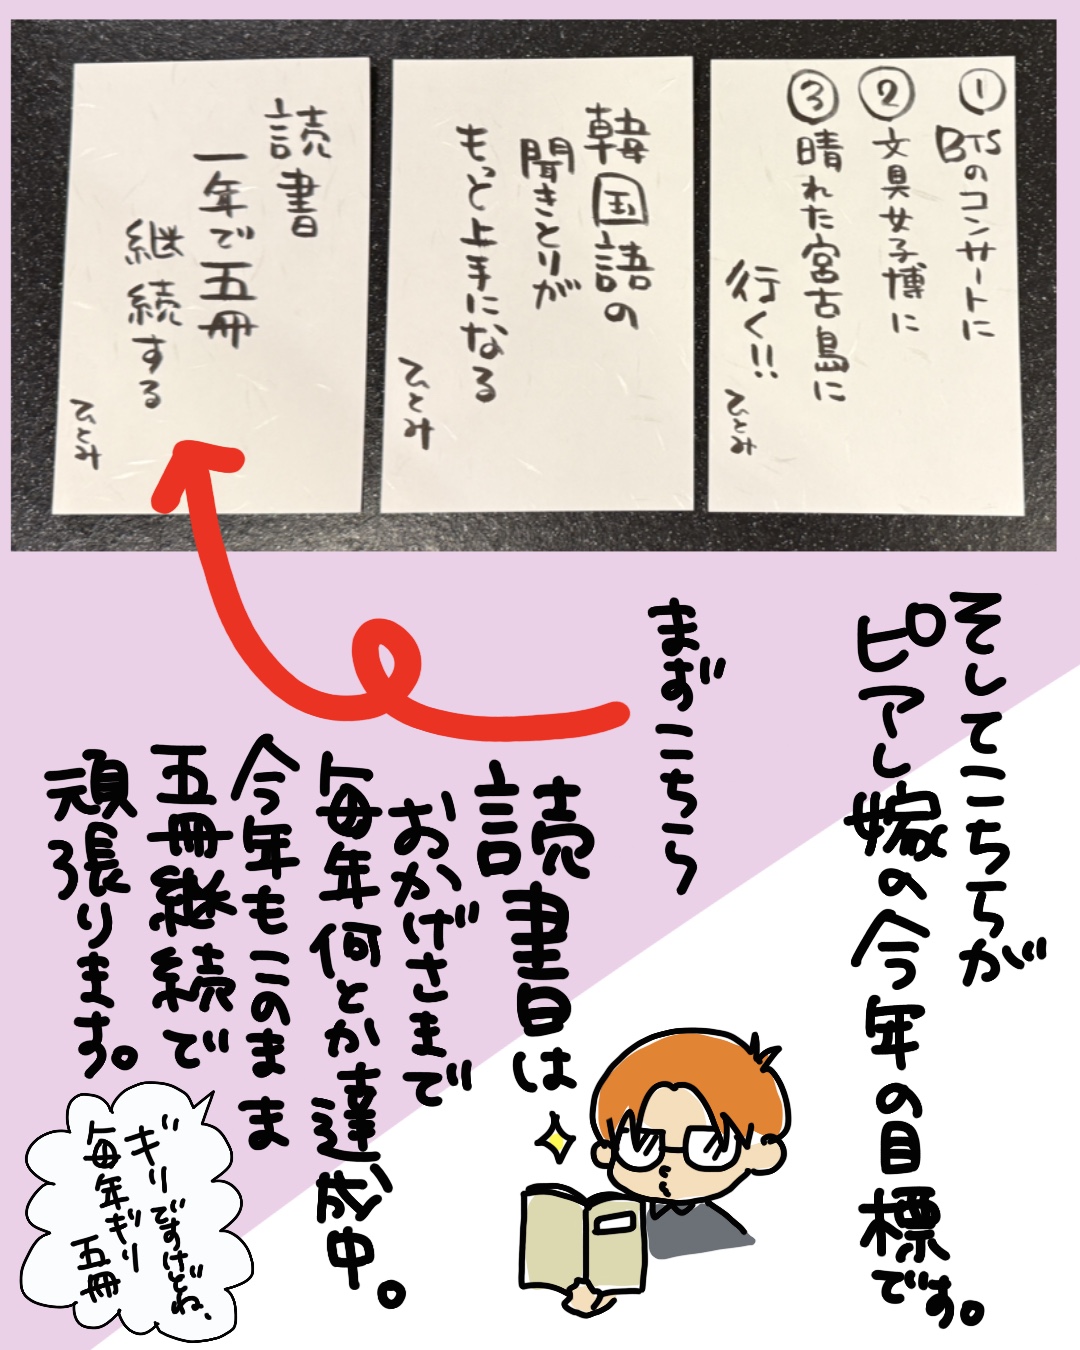 ①BTSのコンサートに
②文具女子博に
③晴れた宮古島に
行く!!
ひとみ
韓国語の
聞きとりが
もっと上手になる
ひとみ
読書
一年で五冊
継続する
ひとみ
そしてこちらが
ピアし嫁の今年の目標です。
まずこちら
読書は
おかげさまで
毎年何とか達成中。
今年もこのまま
五冊継続で
頑張ります。
ギリですけどね、
毎年ギリ
五冊